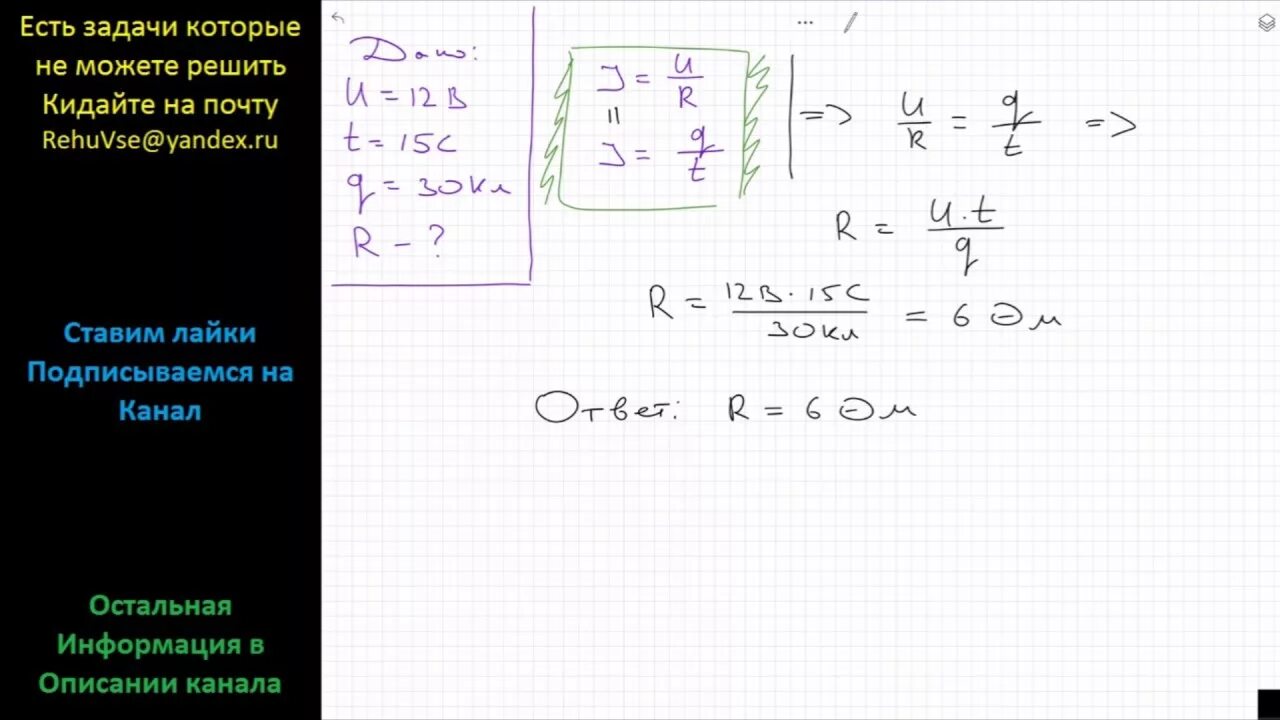 Есть задачи которые
не можете решить
Кидайте на почту
RehuVse@yandex.ru
Ставим лайки
Подписываемся на
Канал
Остальная
Информация в
Описании канала
Дано:
U = 12 В
t = 15 С
q = 30 Кл
R - ?
J = U/R
=
J = q/t
=> U/R = q/t =>
R = U·t/q
R = 12 В · 15 С/30 Кл = 6 Ом
Ответ: R = 6 Ом